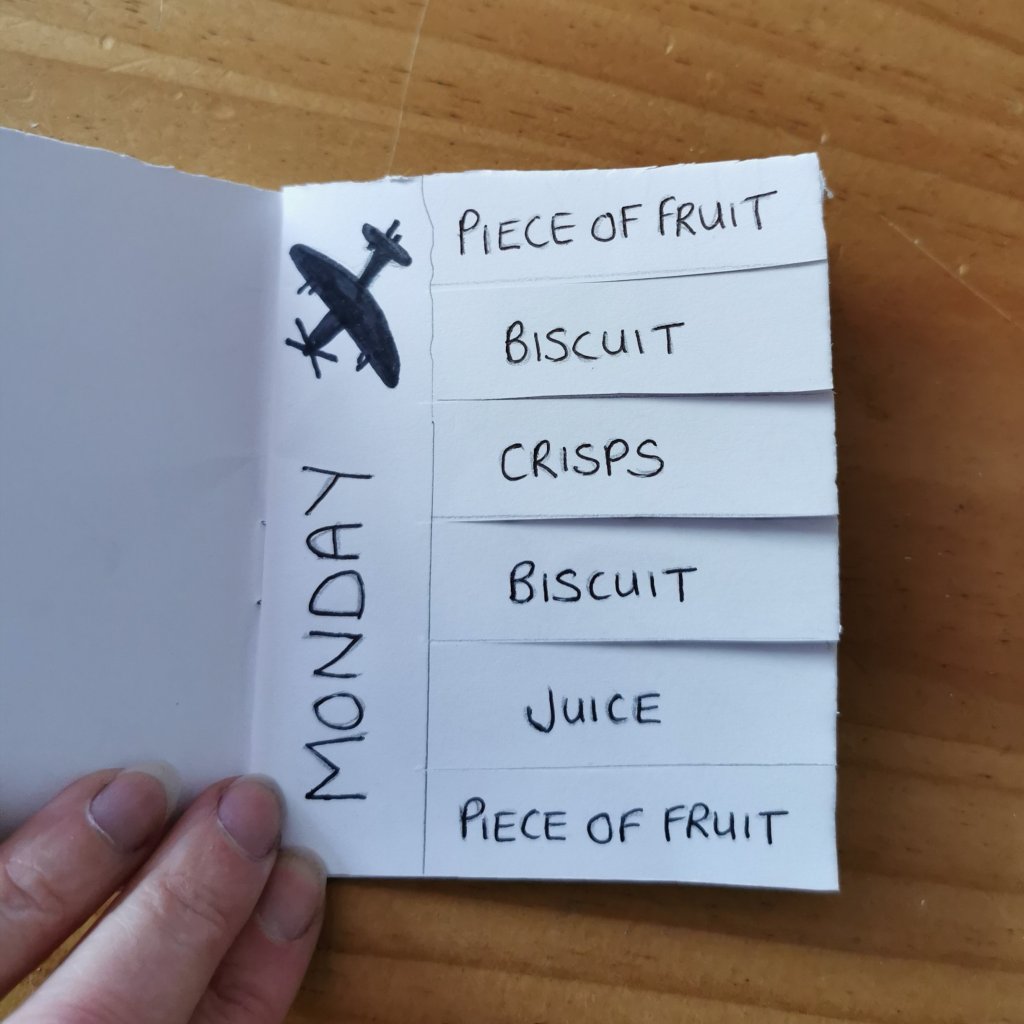 MONDAY
PIECE OF FRUIT
BISCUIT
CRISPS
BISCUIT
JUICE
PIECE OF FRUIT